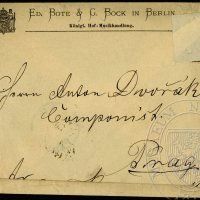 ED. BOTE & G. BOCK IN BERLIN
Königl. Hof-Musikhandlung.
Herrn Anton Dvořák
Componist.
Prag